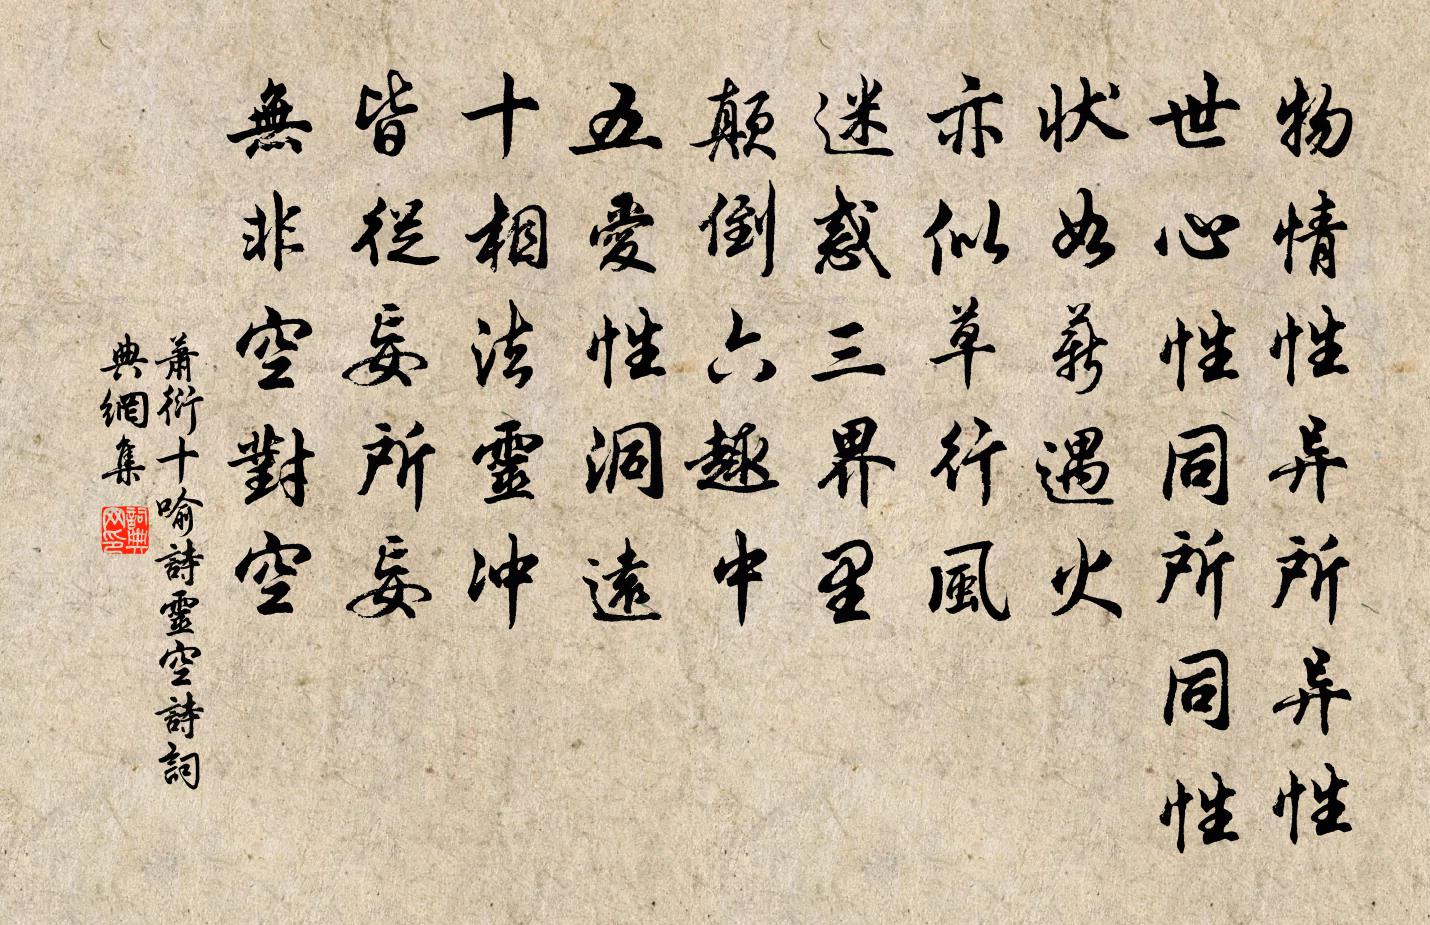 物情性异所异性
世心性同所同性
状如薪遇火
亦似草行風
迷惑三界里
颠倒六趣中
五愛性洞遠
十相法靈冲
皆從妄所妄
無非空對空
萧衍十喻詩靈空詩詞
典網集
詞典
网印